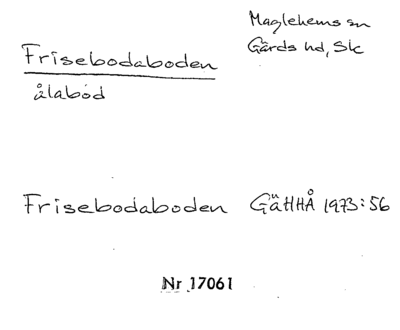 Maglehems sn
Gärds hd, Sk
Frisebodaboden
ålabod
Frisebodaboden GäHHÅ 1973:56
Nr 17061